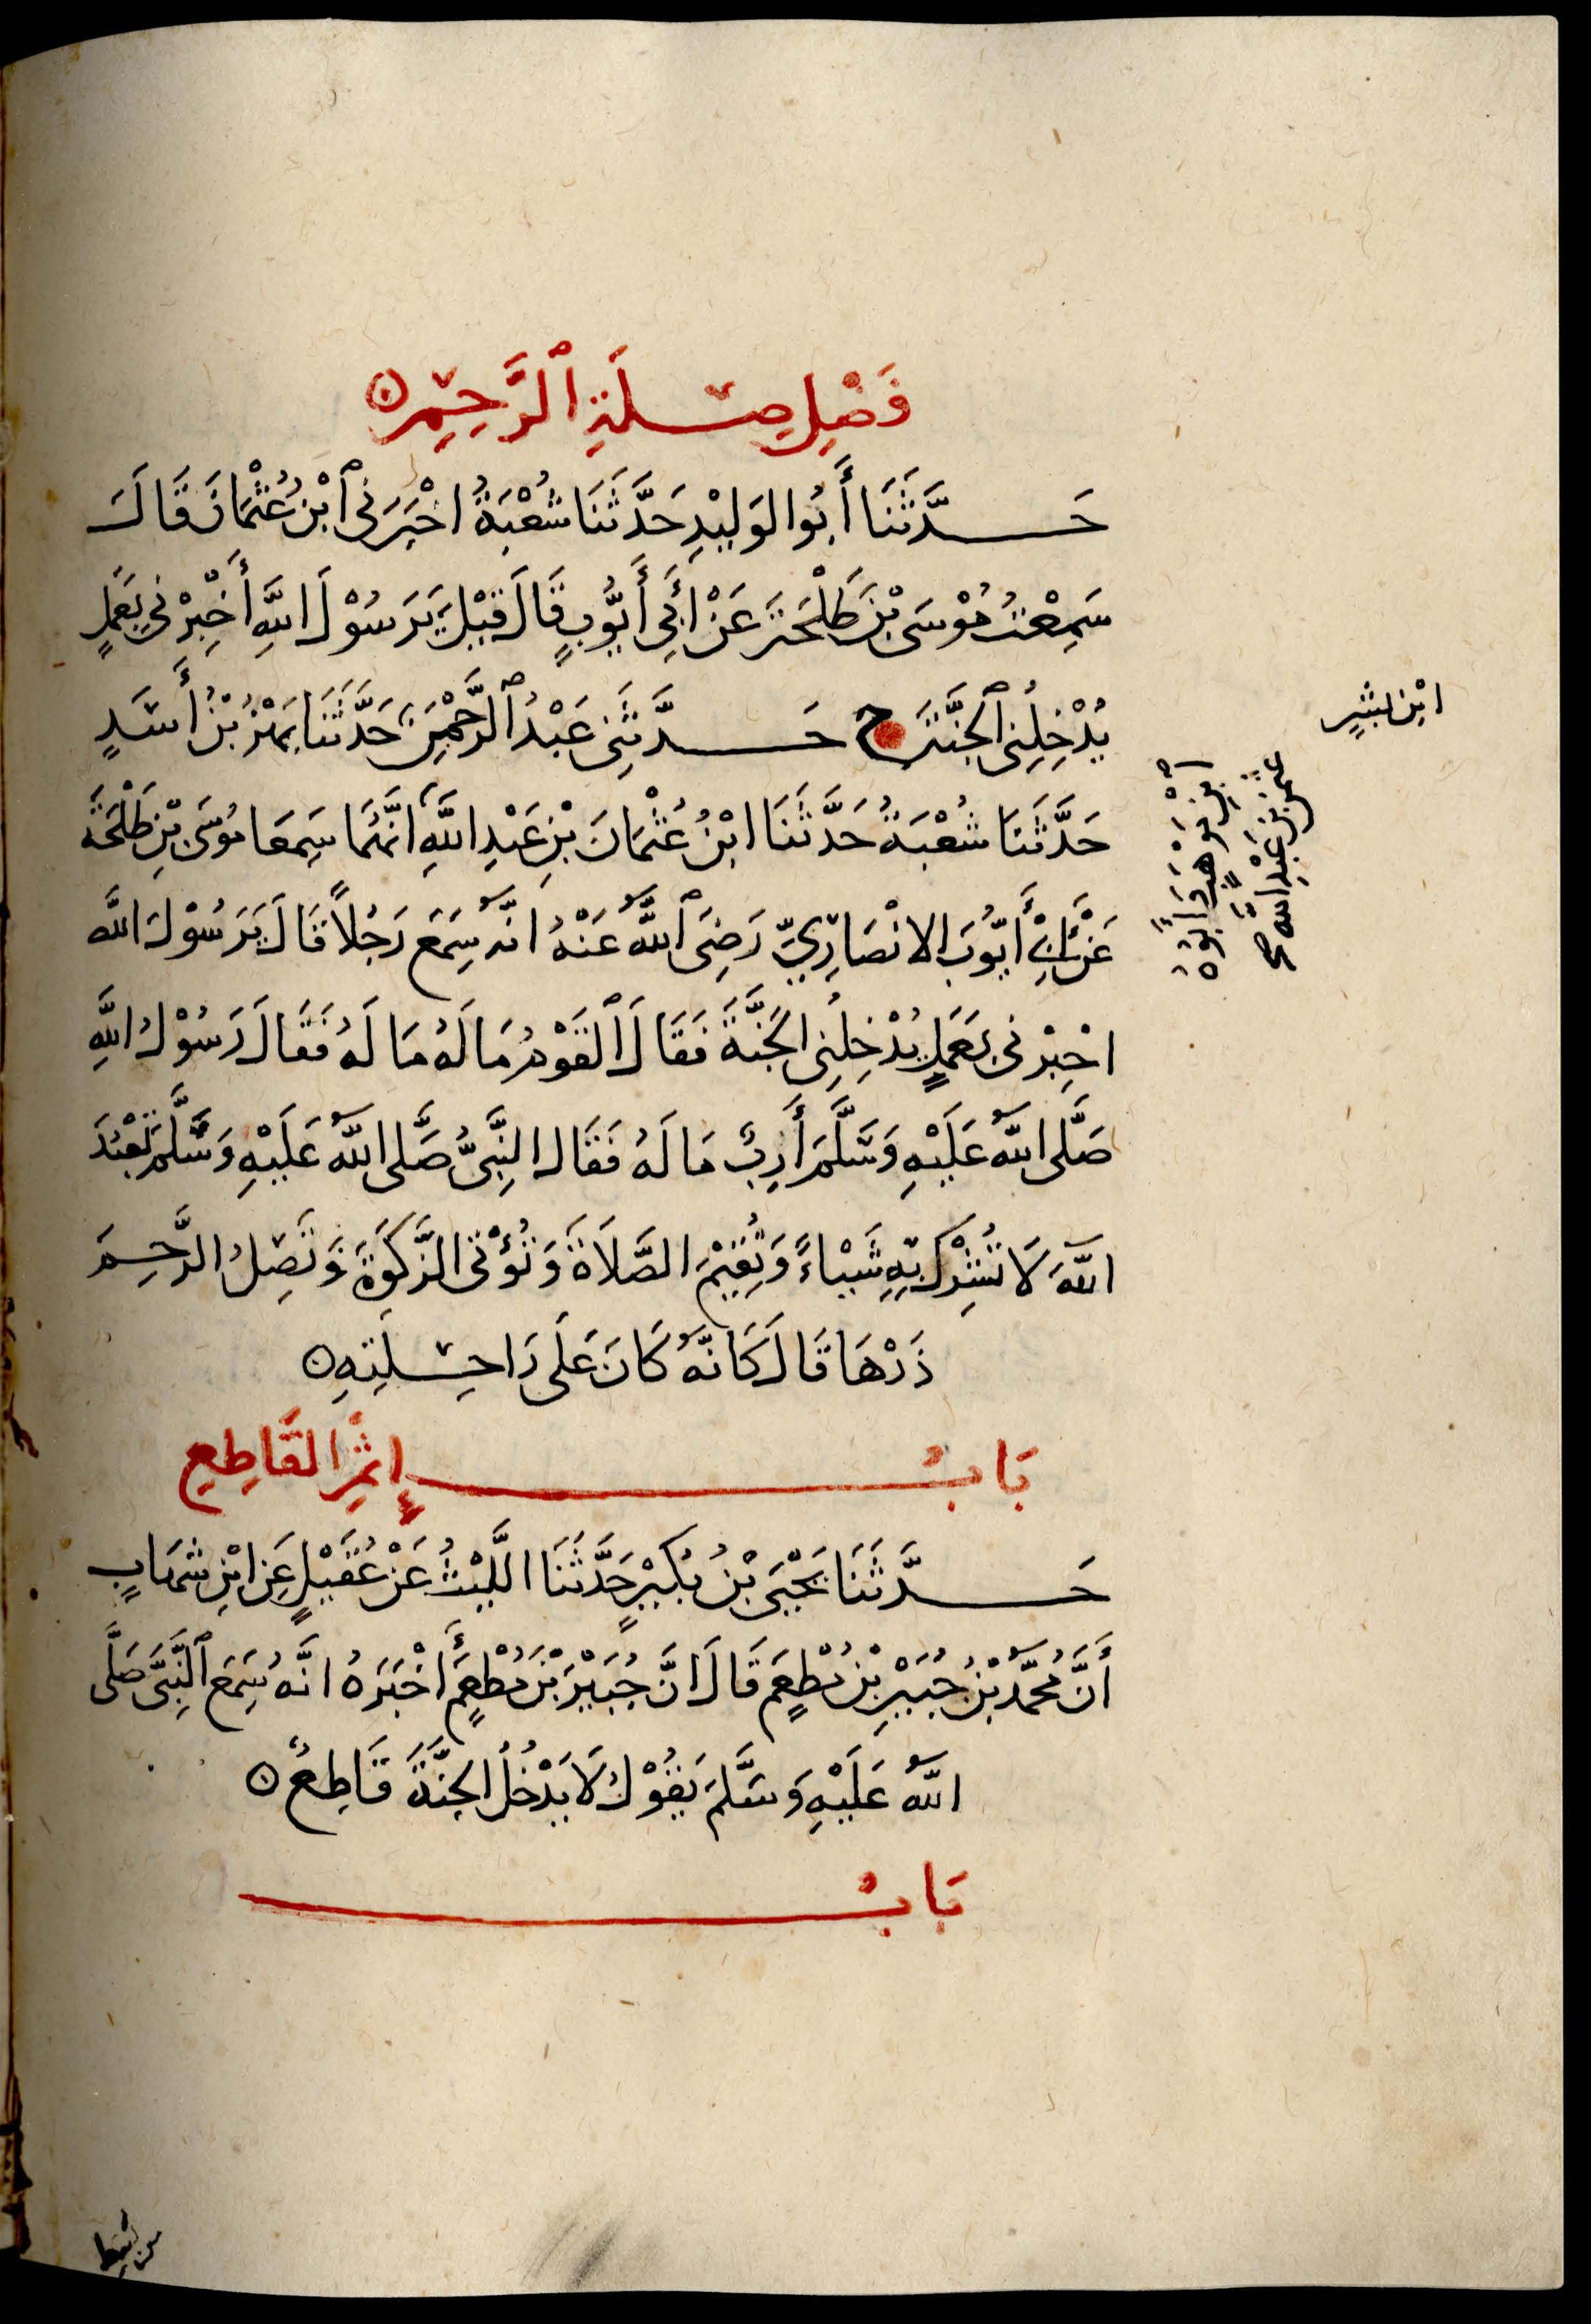 فَضْلِ صِلَةِ ٱلرَّحِيْمِ
حَدَّثَنَا أَبُوا لوَلِيْدِ حَدَّثَنَا شُعْبَةُ اخْبَرَنِى ٱبْنُ عُثْمَانَ قَالَ
سَمِعْتُ مُوْسَى بْنَ طَلْحَةَ عَنْ أَبِي أَيُّوبٍ قَالَ قِيْلَ يَرَسُوْلَ اللَّهِ أَخْبِرْنِي بِعَمَلٍ
يُدْخِلُنِى ٱلجَنَّةَ ح حَدَّثَنِى عَبْدُ ٱلرَّحْمٰنِ حَدَّثَنَا بَهْزُ بْنُ أَسَدٍ
حَدَّثَنَا شُعْبَةُ حَدَّثَنَا ابْنُ عُثْمَانَ بْنِ عَبْدِ اللَّهِ انَّهُمَا سَمِعَا مُوسَى بْنِ طَلْحَةَ
عَنْ أَبِي أَيُّوبَ الانْصَارِيِّ رَضِىَ ٱللَّهُ عَنْهُ انَّهُ سَمِعَ رَجُلاً قَالَ يَرَسُوْلَ اللَّه
اخْبِرْنِى بِعَمَلٍ يُدْخِلُنِى الجَنَّةَ فَقَالَ ٱلقَوْمُ مَا لَهُ مَا لَهُ فَقَالَ رَسُوْلُ اللَّهِ
صَلَّى اللَّهُ عَلَيْهِ وَسَّلَّمَ أَرِبٌ مَا لَهُ فَقَال النَّبِىُّ صَلَّى اللَّهُ عَلَيْهِ وَسَّلَّمَ تَعْبُدَ
اللَّهَ لَا تُشْرِكْ بِهِ شَيْاءً وَتُقِيْمَ الصَّلاَةَ وَتُؤْتِى الزَّكَوةَ وَتَصِلُ الرَّحِمَ
ذَرْهَا قَالَ كَانَّهُ كَانَ عَلَى رَاحِلَتِهِ
بَابُ إِثْمِ القَاطِعِ
حَدَّثَنَا يَحْيَى بْنُ بُكَيْرٍ حَدَّثَنَا اللَّيْثُ عَنْ عُقَيْلٍ عَنِ ابْنِ شهَابٍ
أَنَّ مُحَمَّدَ بْنُ جُبَيْرِ بْنِ مُطْعِمٍ قَالَ انَّ جُبَيْرَ بْنَ مُطْعِمٍ أَخْبَرَهُ انَّهُ سَمِعَ ٱلنَّبِىَّ صَلَّى
اللَّهُ عَلَيْهِ وَسَلَّمَ يَقُوْلُ لَا يَدْخُلُ الجَنَّةَ قَاطِعٌ
بَابُ
ابْن بشِيرٍ
عثمٰن بْن عَبْدِ اللَّه